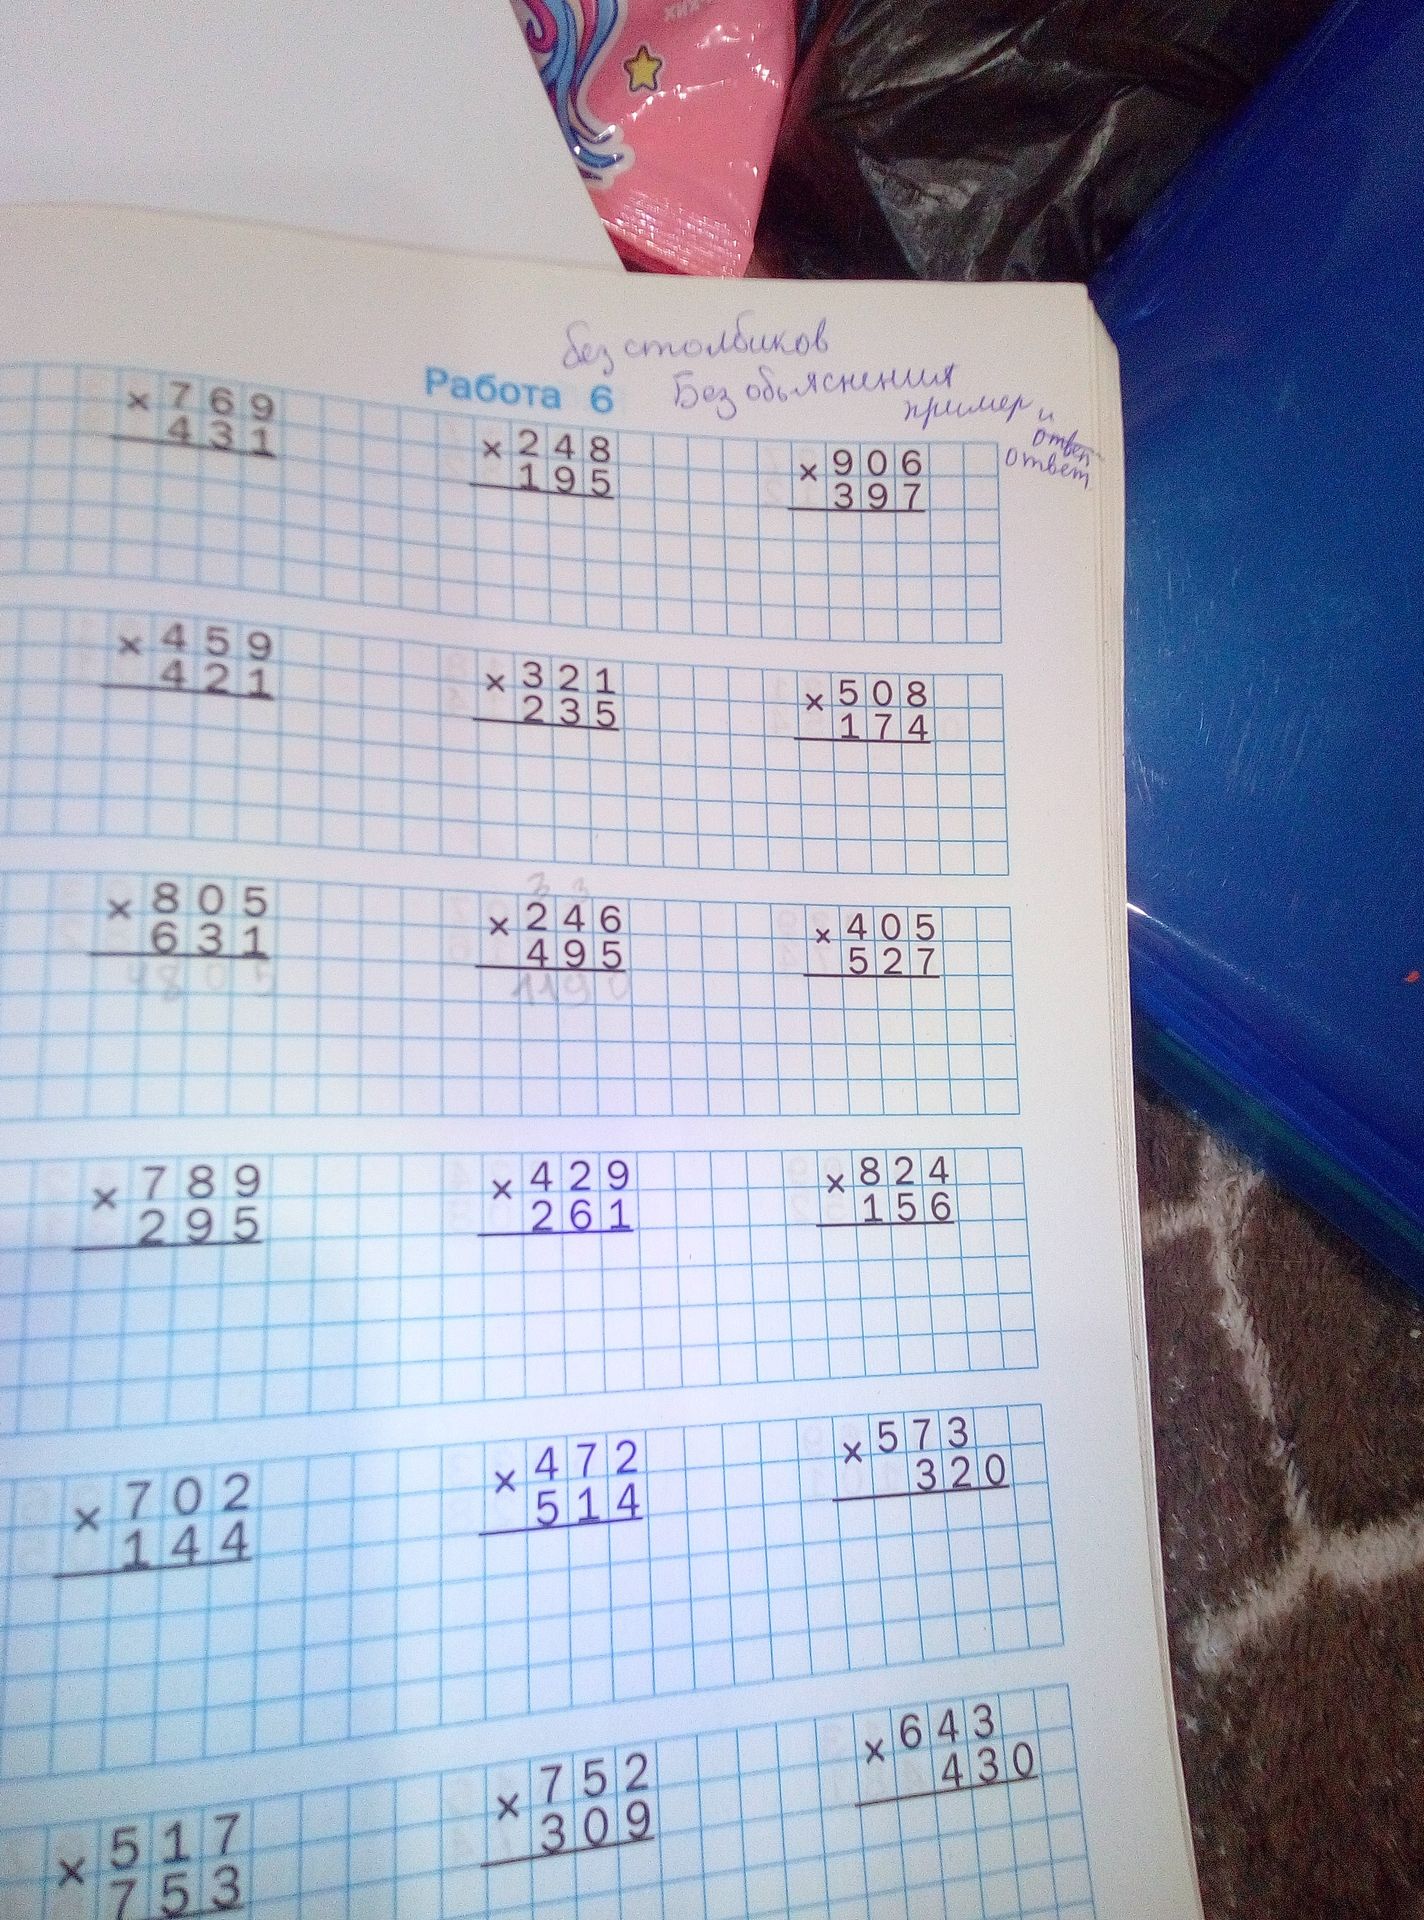 без столбиков
Работа 6
Без обьяснения
пример и
ответ
× 769
431
× 248
195
× 906
397
× 459
421
× 321
235
× 508
174
× 805
631
3 3
× 246
495
× 405
527
× 789
295
× 429
261
× 824
156
× 702
144
× 472
514
× 573
320
× 517
753
× 752
309
× 643
430